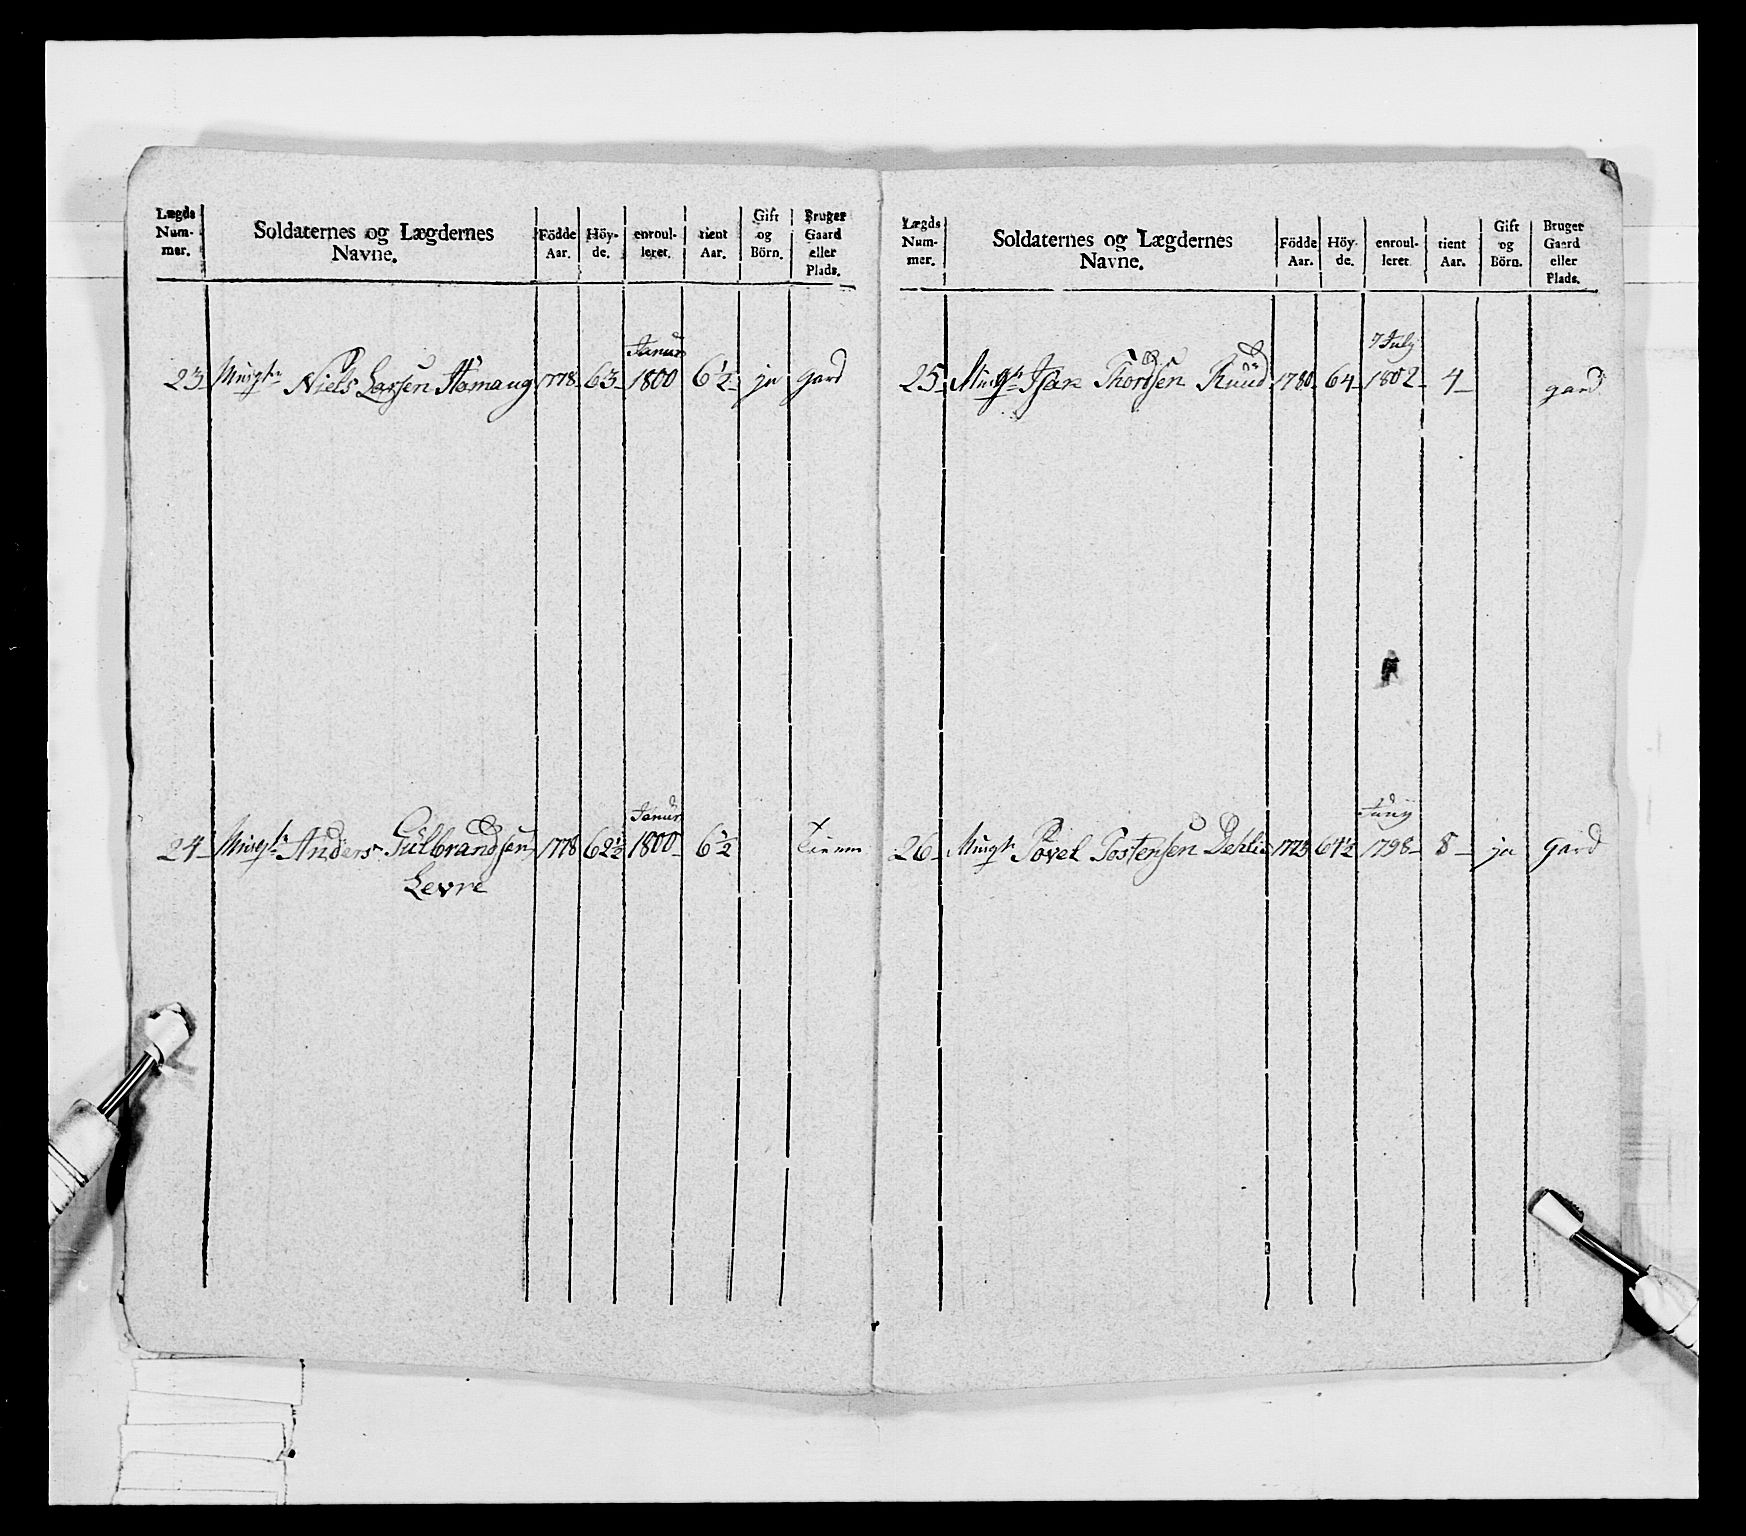 Lægds Num-mer. Soldaternes og Lægdernes Navne. Födde Aar. Höy-de. enroul-leret. tient Aar. Gift og Börn. Bruger Gaard eller Plads.
Janur
23 Musqtr Niels Larsen Hamang 1778 63 1800 6½ ja gard
Janur
24 Musqtr Anders Gulbrandsen 1778 62½ 1800 6½
Levre
Lægds Num-mer. Soldaternes og Lægdernes Navne. Födde Aar. Höy-de. enroul-leret. tient Aar. Gift og Börn. Bruger Gaard eller Plads.
7 July
25 Musqtr Isak Thordsen Ruud 1780 64 1802 4 gard
Juny
26 Musqtr Povel Tostensen Dehlie 1798 8 ja gard